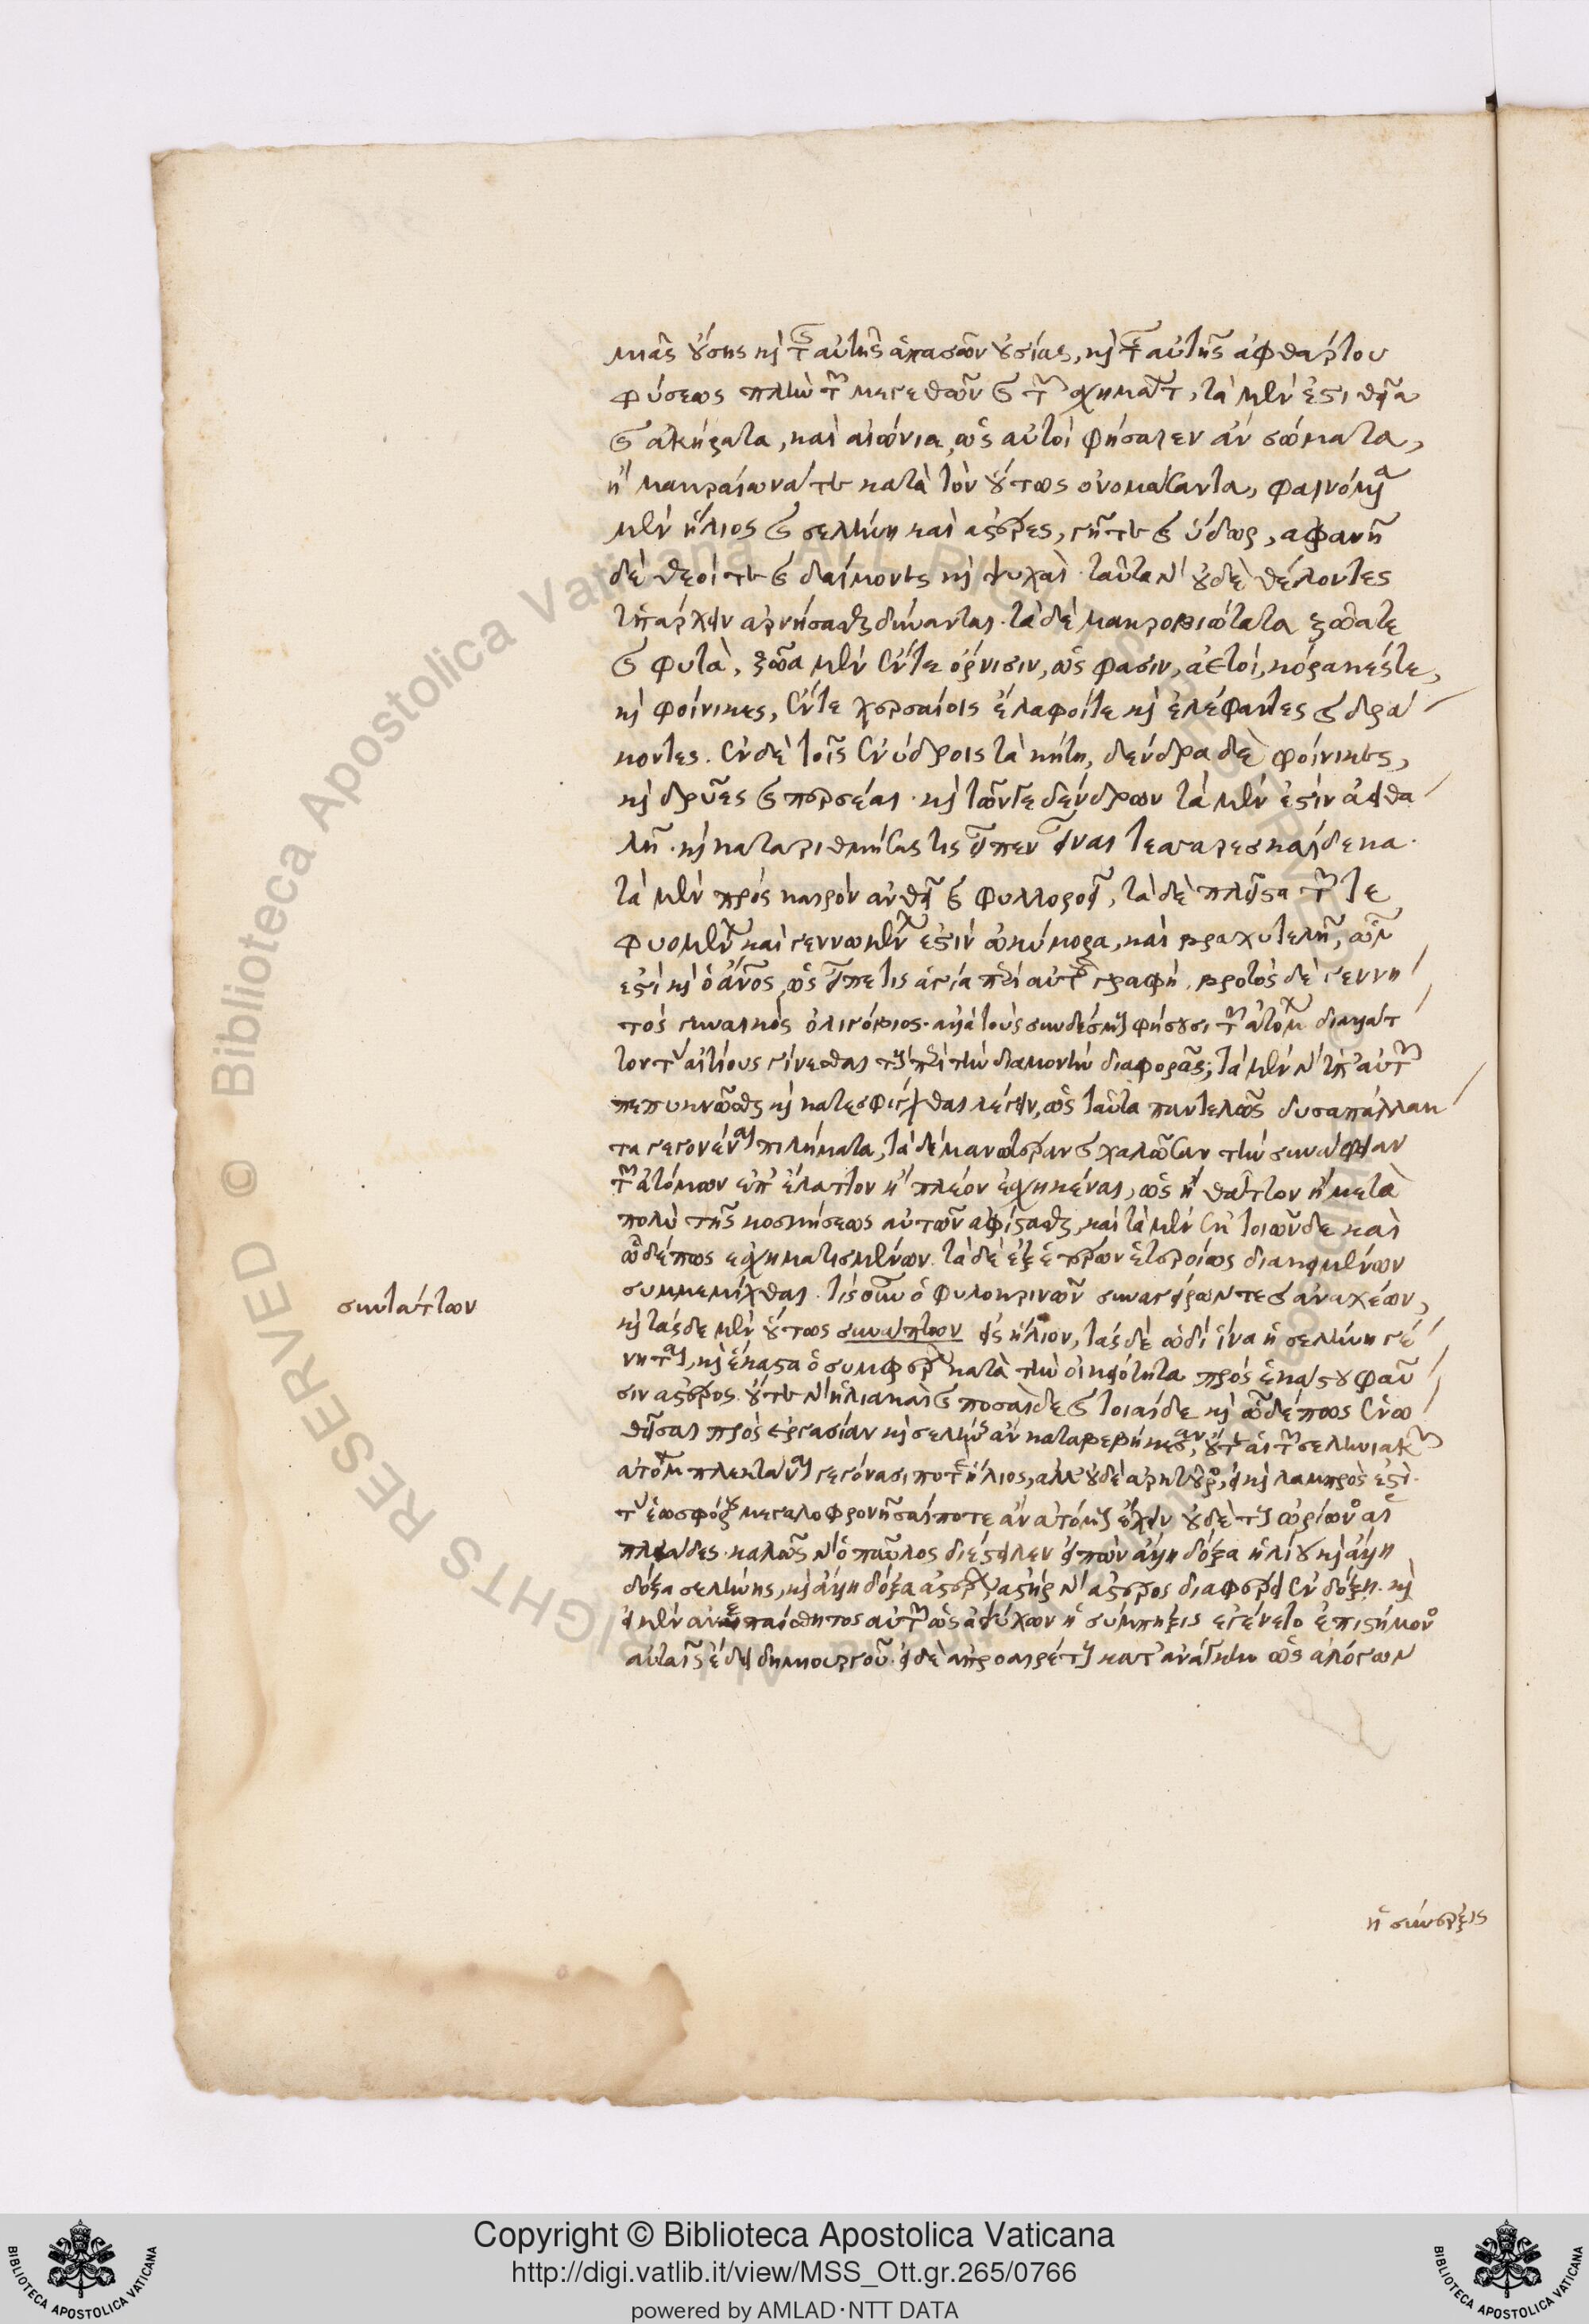 μιᾶς οὔσης καὶ τῆς αὐτῆς ἁπασῶν οὐσίας, καὶ τῆς αὐτῆς ἀφθάρτου
φύσεως πλὴν τῶν μεγεθῶν καὶ τῶν σχημάτων, τὰ μέν ἐστι θεῖα
καὶ ἀκήρατα, καὶ αἰώνια, ὡς αὐτοὶ φήσαιεν ἂν σώματα,
ἢ μακραίωνά τε κατὰ τὸν οὕτως ὀνομάσαντα, φαινόμενα
μὲν ἥλιος καὶ σελήνη καὶ ἀστέρες, γῆ τε καὶ ὕδωρ, ἀφανῆ
δὲ θεοί τε καὶ δαίμονες καὶ ψυχαί. ταῦτα γὰρ οὐδὲ θέλοντες
ὑπάρχειν ἀρνήσασθαι δύνανται. τὰ δὲ μακροβιώτατα ζῷά τε
καὶ φυτά, ζῷα μὲν ἔν τε ὄρνισιν, ὥς φασιν, ἀετοί, κόρακές τε,
καὶ φοίνικες, ἔν τε χερσαίοις ἔλαφοί τε καὶ ἐλέφαντες καὶ δρά
κοντες. ἐν δὲ τοῖς ἐνύδροις τὰ κήτη, δένδρα δὲ φοίνικες,
καὶ δρῦες καὶ περσέαι. καὶ τῶν γε δένδρων τὰ μέν ἐστιν ἀειθα
λῆ. καὶ καταριθμήσας τις εἶπεν εἶναι τεσσαρεσκαίδεκα.
τὰ μὲν πρὸς καιρὸν ἀνθεῖ καὶ φυλλοροεῖ, τὰ δὲ πλεῖστα τῶν τε
φυομένων καὶ γεννωμένων ἐστὶν ὠκύμορα, καὶ βραχυτελῆ, ὧν
ἐστὶ καὶ ὁ ἄνθρωπος, ὡς εἶπέ τις ἁγία περὶ αὐτοῦ γραφή. βροτὸς δὲ γεννη
τὸς γυναικὸς ὀλιγόβιος. ἀλλὰ τοὺς συνδέσμους φήσουσι τῶν ἀτόμων διαλλάτ
τοντας αἰτίους γίνεσθαι τῆς περὶ τὴν διαμονὴν διαφορᾶς; τὰ μὲν γὰρ ὑπ᾽ αὐτῶν
πεπυκνῶσθαι καὶ κατεσφίγχθαι λέγειν, ὡς ταῦτα παντελῶς δυσαπάλλακ
τα γεγονέναι πιλήματα, τὰ δὲ μανωτέραν καὶ χαλῶσαν τὴν συνάφειαν
τῶν ἀτόμων ἐπ᾽ ἔλαττον ἢ πλέον ἐσχηκέναι, ὡς ἢ θᾶττον ἢ μετὰ
πολὺ τῆς κοσμήσεως αὐτῶν ἀφίστασθαι, καὶ τὰ μὲν ἐκ τοιῶνδε καὶ
ὧδέ πως ἐσχηματισμένων. τὰ δὲ ἐξ ἑτέρων ἑτεροίως διακειμένων
συμμεμίχθαι. τίς οὖν ὁ φυλοκρινῶν συναγείρων τε καὶ ἀναχέων,
συντάττων
καὶ τάσδε μὲν οὕτως συνάπτων εἰς ἥλιον, τὰς δὲ ὡδὶ ἵνα ἡ σελήνη γέ
νηται, καὶ ἕκαστα ὁ συμφέρων κατὰ τὴν οἰκειότητα πρὸς ἑκάστου φαῦ
σιν ἀστέρος. οὔτε γὰρ ἡλιακαὶ καὶ ποσαίδε καὶ τοιαίδε καὶ ὧδέ πως ἑνω
θεῖσαι πρὸς ἐργασίαν καὶ σελήνης ἂν καταβεβήκεσαν, οὔτ᾽ ἂν αἱ τῶν σεληνιακῶν
ἀτόμων πλεκτάναι γεγόνασί ποτε ἥλιος, ἀλλ᾽ οὐδὲ ἀρκτοῦρος, εἰ καὶ λαμπρός ἐστι.
τὰς ἑωσφόρου μεγαλοφρονῆσαί ποτε ἂν ἀτόμους ἔχειν οὐδὲ τὰς ὠρίωνος αἱ
πλειάδες. καλῶς γὰρ ὁ παῦλος διέστειλεν εἰπὼν ἄλλη δόξα ἡλίου καὶ ἄλλη
δόξα σελήνης, καὶ ἄλλη δόξα ἀστέρων, ἀστὴρ γὰρ ἀστέρος διαφέρει ἐν δόξῃ. καὶ
εἰ μὲν ἀνεπαίσθητος αὐτῶν ὡς ἀψύχων ἡ σύμπηξις ἐγένετο ἐπιστήμονος
αὐταῖς ἔδει δημιουργοῦ. εἰ δὲ ἀπροαιρέτως κατ᾽ ἀνάγκην ὡς ἀλόγων
ἡ σύνερξις
Copyright © Biblioteca Apostolica Vaticana
http://digi.vatlib.it/view/MSS_Ott.gr.265/0766
powered by AMLAD·NTT DATA